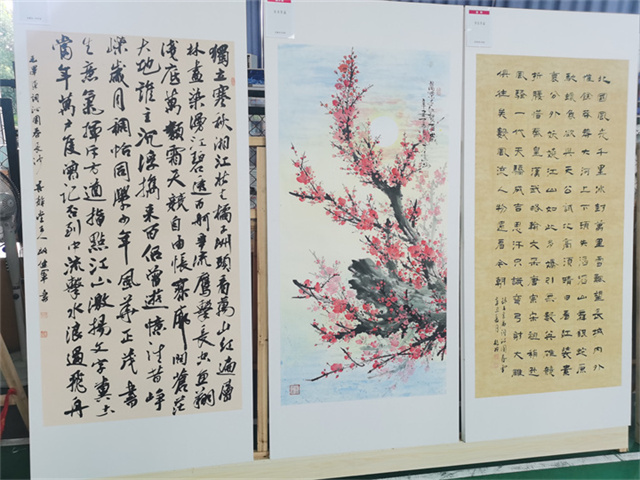 獨立寒秋湘江北去橘子洲頭看萬山紅遍層
林盡染漫江碧透百舸争流鷹擊長空魚翔
淺底萬類霜天競自由悵寥廓問蒼茫
大地誰主沉浮携來百侣曾遊憶往昔崢
嶸歲月稠恰同學少年風華正茂書
生意氣揮斥方遒指點江山激揚文字糞土
當年萬户侯曾記否到中流擊水浪遏飛舟
毛澤東詞沁園春長沙
北國風光千里冰封萬里雪飄望長城内外
惟餘莽莽大河上下頓失滔滔山舞銀蛇原
馳蠟象欲與天公試比高須晴日看紅裝素
裹分外妖嬈江山如此多嬌引無數英雄競
折腰惜秦皇漢武略輸文采唐宗宋祖稍遜
風騷一代天驕成吉思汗只識彎弓射大雕
俱往矣數風流人物還看今朝